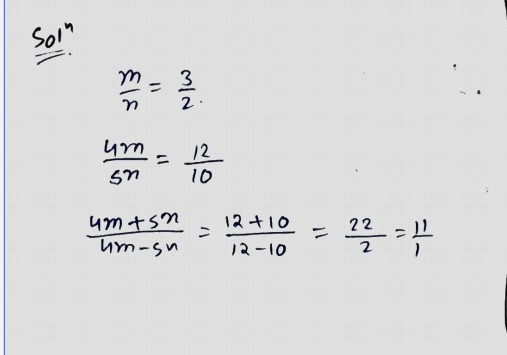 Solⁿ
m/n = 3/2.
4m/5n = 12/10
4m+5n/4m-5n = 12+10/12-10 = 22/2 = 11/1